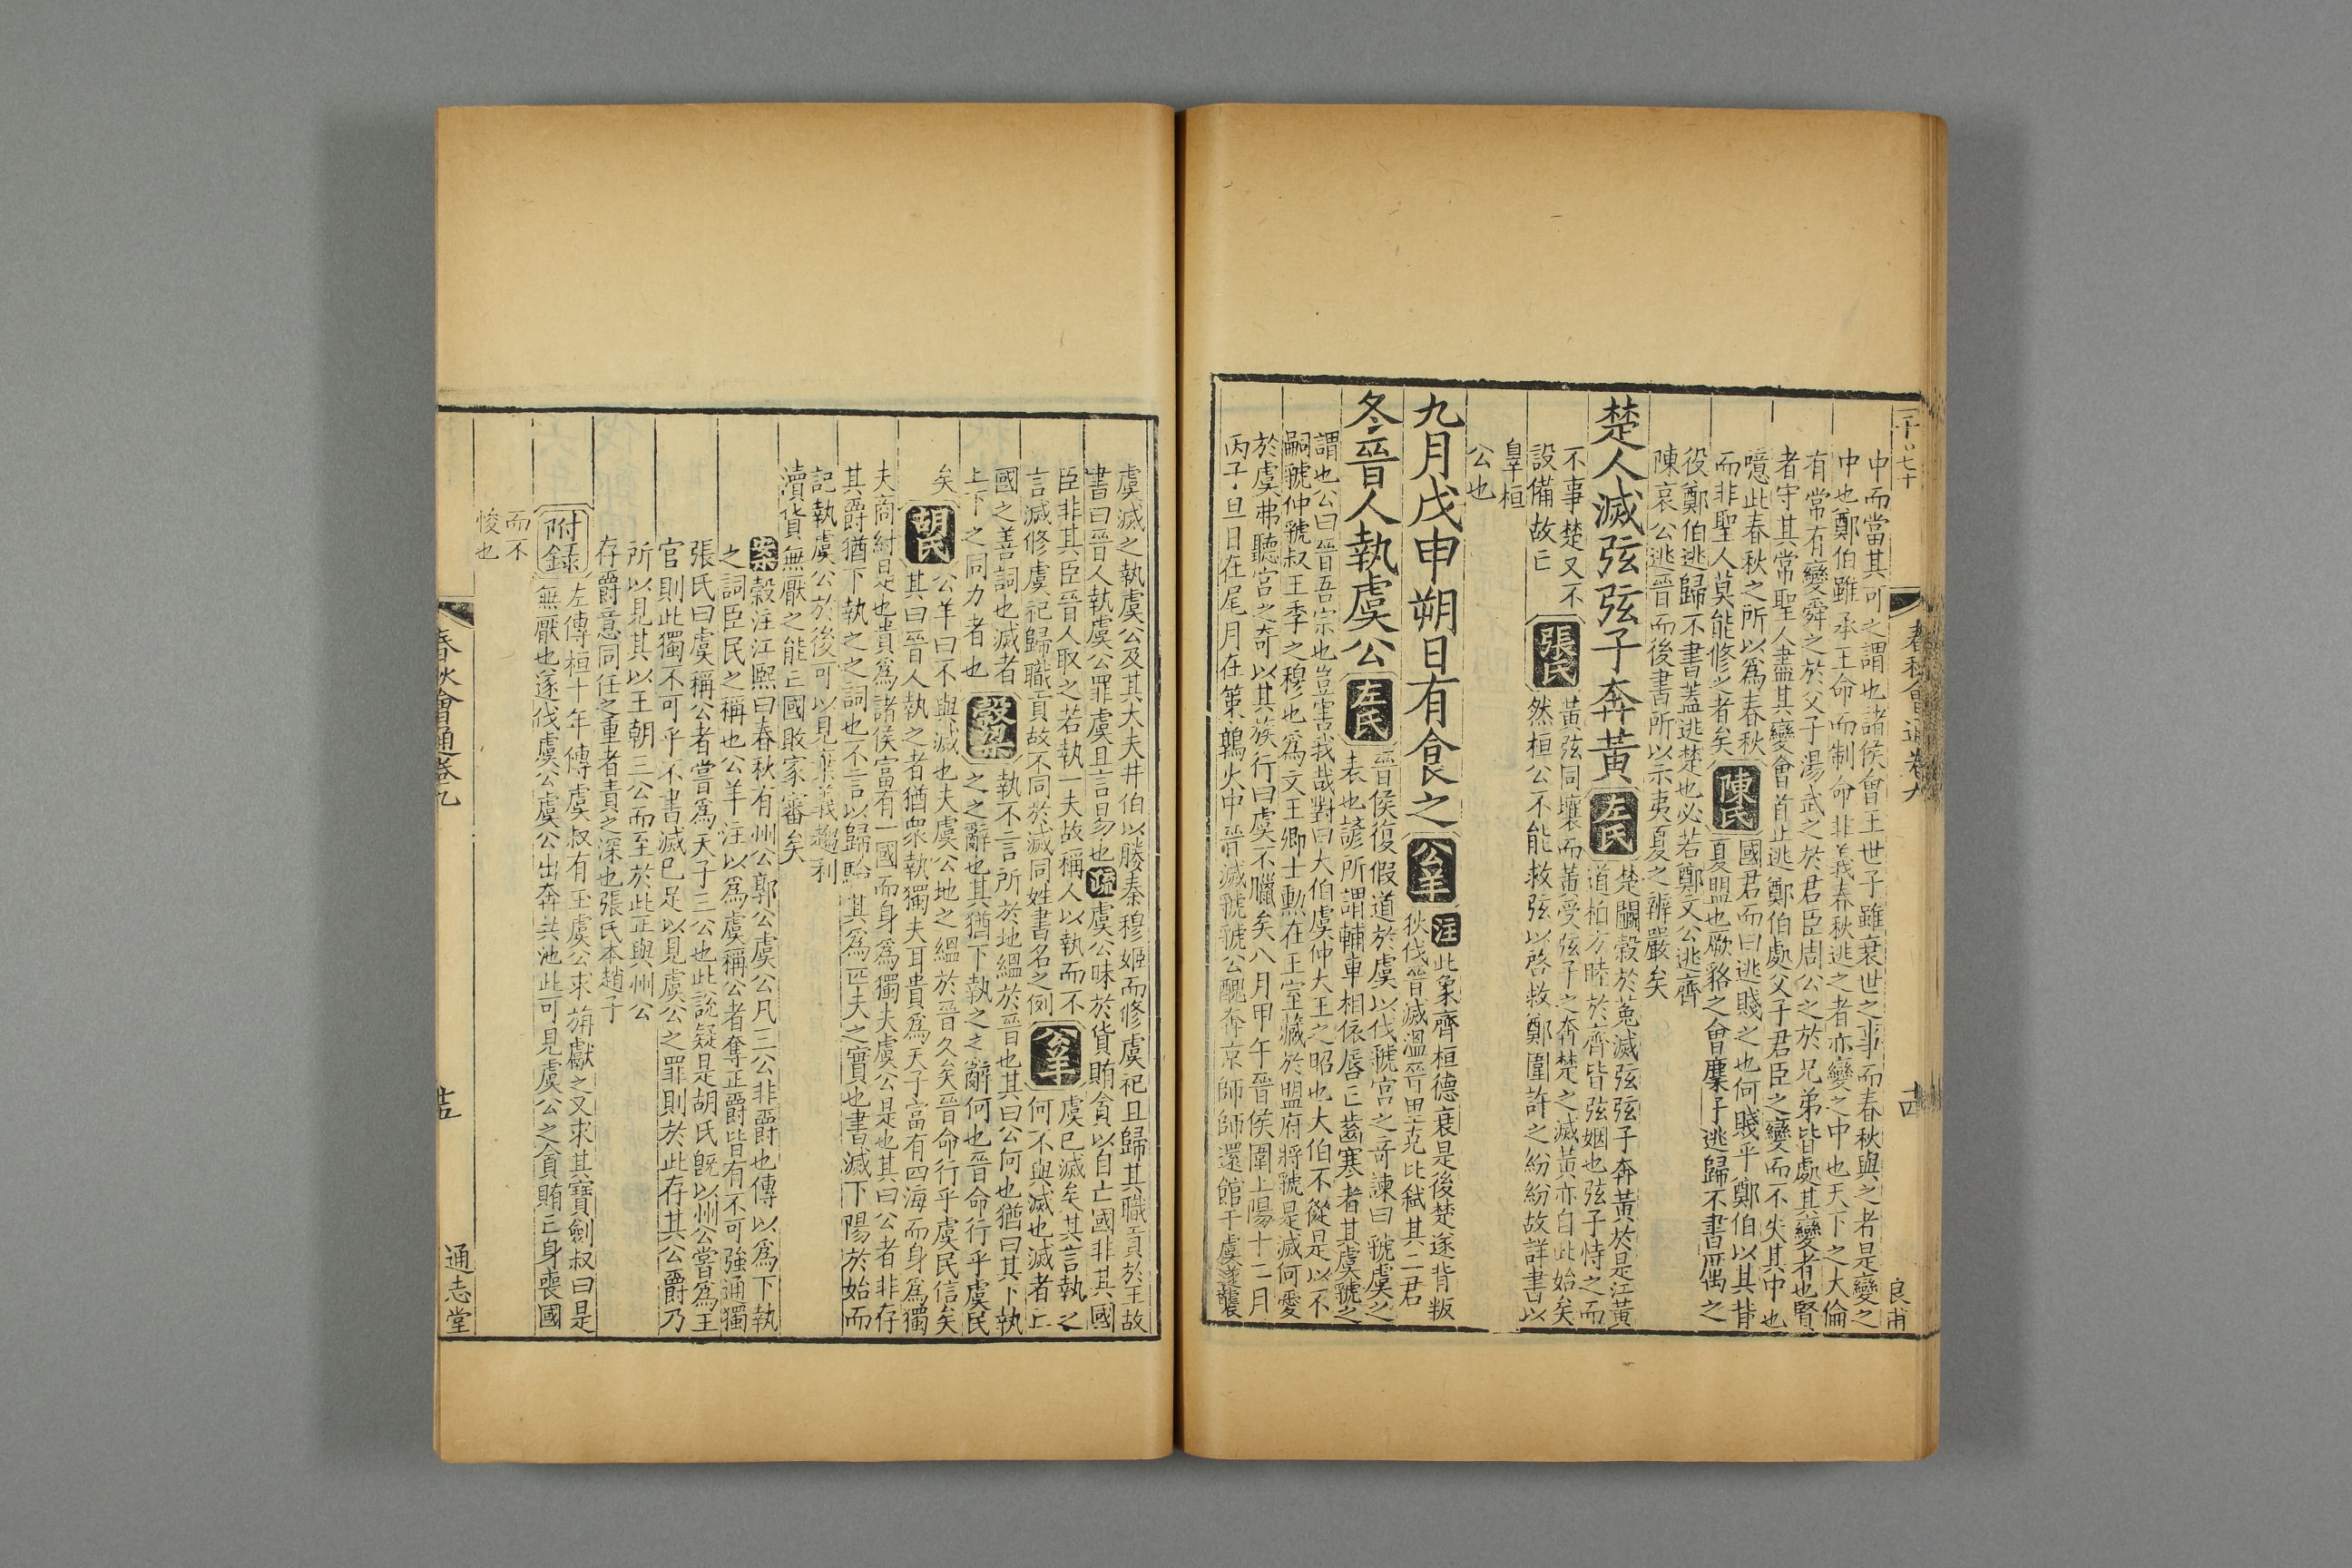 春秋會通卷九
十四
良甫
中而當其可之謂也諸侯會王世子雖衰世之事而春秋與之者是變之
中也鄭伯雖承王命而制命非義春秋逃之者亦變之中也天下之大倫
有常有變舜之於父子湯武之於君臣周公之於兄弟皆處其變者也賢
者守其常聖人盡其變會首止逃鄭伯處父子君臣之變而不失其中也
噫此春秋之所以為春秋
而非聖人莫能修之者矣
陳氏
國君而曰逃賤之也何賤乎鄭伯以其背
夏盟也厥貉之會麇子逃歸不書厲之
役鄭伯逃歸不書蓋逃楚也必若鄭文公逃齊
陳哀公逃晉而後書所以示夷夏之辨嚴矣
楚人滅弦弦子奔黃
左氏
楚鬬穀於菟滅弦弦子奔黃於是江黃
道柏方睦於齊皆弦姻也弦子恃之而
不事楚又不
設備故亡
張氏
黃弦同壤而黃受弦子之奔楚之滅黃亦自此始矣
然桓公不能救弦以啓救鄭圍許之紛紛故詳書以
辠桓
公也
九月戊申朔日有食之
公羊
注
此象齊桓德衰是後楚遂背叛
狄伐晉滅溫晉里克比弒其二君
冬晉人執虞公
左氏
晉侯復假道於虞以伐虢宮之奇諫曰虢虞之
表也諺所謂輔車相依唇亡齒寒者其虞虢之
謂也公曰晉吾宗也豈害我哉對曰大伯虞仲大王之昭也大伯不從是以不
嗣虢仲虢叔王季之穆也為文王卿士勳在王室藏於盟府將虢是滅何愛
於虞弗聽宮之奇以其族行曰虞不臘矣八月甲午晉侯圍上陽十二月
丙子旦日在尾月在策鶉火中晉滅虢虢公醜奔京師師還館于虞遂襲
虞滅之執虞公及其大夫井伯以媵秦穆姬而修虞祀且歸其職貢於王故
書曰晉人執虞公罪虞且言易也
疏
虞公昧於貨賄貪以自亡國非其國
臣非其臣晉人取之若執一夫故稱人以執而不
言滅修虞祀歸職貢故不同於滅同姓書名之例
公羊
虞已滅矣其言執之
何不與滅也滅者亡
國之善詞也滅者
上下之同力者也
穀梁
執不言所於地縕於晉也其曰公何也猶曰其下執
之之辭也其猶下執之之辭何也晉命行乎虞民
矣
公羊曰不與滅也夫虞公地之縕於晉久矣晉命行乎虞民信矣
胡氏
其曰晉人執之者猶衆執獨夫耳貴為天子富有四海而身為獨
夫商紂是也貴為諸侯富有一國而身為獨夫虞公是也其曰公者非存
其爵猶下執之之詞也不言以歸
其為匹夫之實也書滅下陽於始而
記執虞公於後可以見棄義趨利
瀆貨無厭之能亡國敗家審矣
案
穀注江熙曰春秋有州公郭公虞公凡三公非爵也傳以為下執
之詞臣民之稱也公羊注以為虞稱公者奪正爵皆有不可強通獨
張氏曰虞稱公者嘗為天子三公也此說疑是胡氏既以州公嘗為王
官則此獨不可乎不書滅已足以見虞公之罪則於此存其公爵乃
所以見其以王朝三公而至於此正與州公
存爵意同任之重者責之深也張氏本趙子
附錄
左傳桓十年傳虞叔有玉虞公求旃獻之又求其寶劍叔曰是
無厭也遂伐虞公虞公出奔共池此可見虞公之貪賄亡身喪國
而不
悛也
春秋會通卷九
十五
通志堂